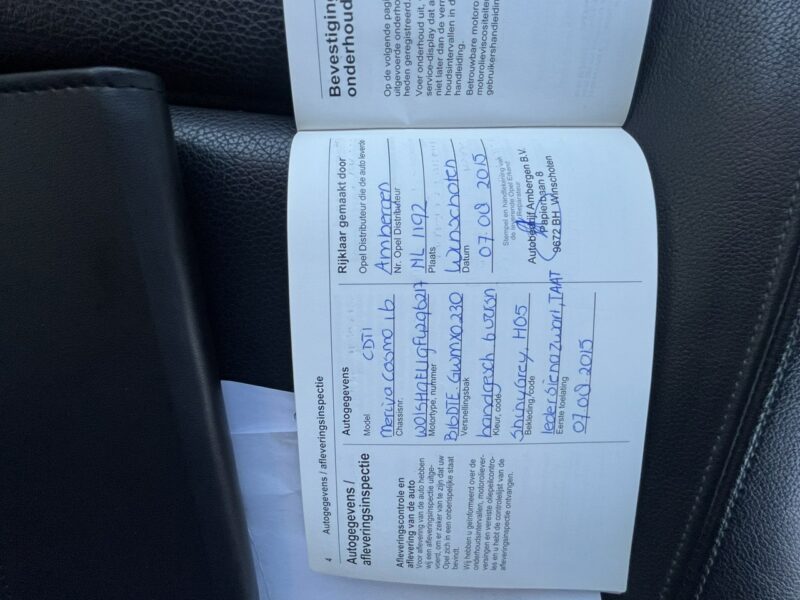 4
Autogegevens / afleveringsinspectie
Autogegevens /
afleveringsinspectie
Afleveringscontrole en
aflevering van de auto
Voor aflevering van de auto hebben
wij een afleveringsinspectie uitge-
voerd, om er zeker van te zijn dat uw
Opel zich in een onberispelijke staat
bevindt.
Wij hebben u geïnformeerd over de
onderhoudsintervallen, motoroliever-
versingen en vereiste oliepeilcontro-
les en u hebt de controlelijst van de
afleveringsinspectie ontvangen.
Autogegevens
Model
CDTI
Meriva Cosmo 1.6
Chassisnr.
Motortype, nummer
B16DTE
Versnellingsbak
handgesch 6 versn
Kleur, code
Shiny Grey, H05
Bekleding/code
leder Siena zwart, TAAT
Eerste toelating
07.08 2015
Rijklaar gemaakt door
Opel Distributeur die de auto leverde
Ambergen
Nr. Opel Distributeur
NL 1192
Plaats
Winschoten
Datum
07.08 2015
Stempel en handtekening van
de leverende Opel Erkend
Reparateur
Autobedrijf Ambergen B.V.
Papierbaan 8
9672 BH Winschoten
Bevestiging
onderhoud
Op de volgende pag
uitgevoerde onderho
heden geregistreerd.
Voer onderhoud uit,
service-display dat a
niet later dan de verm
houdsintervallen in d
handleiding.
Betrouwbare motoro
motorolieviscositeiten
gebruikershandleiding